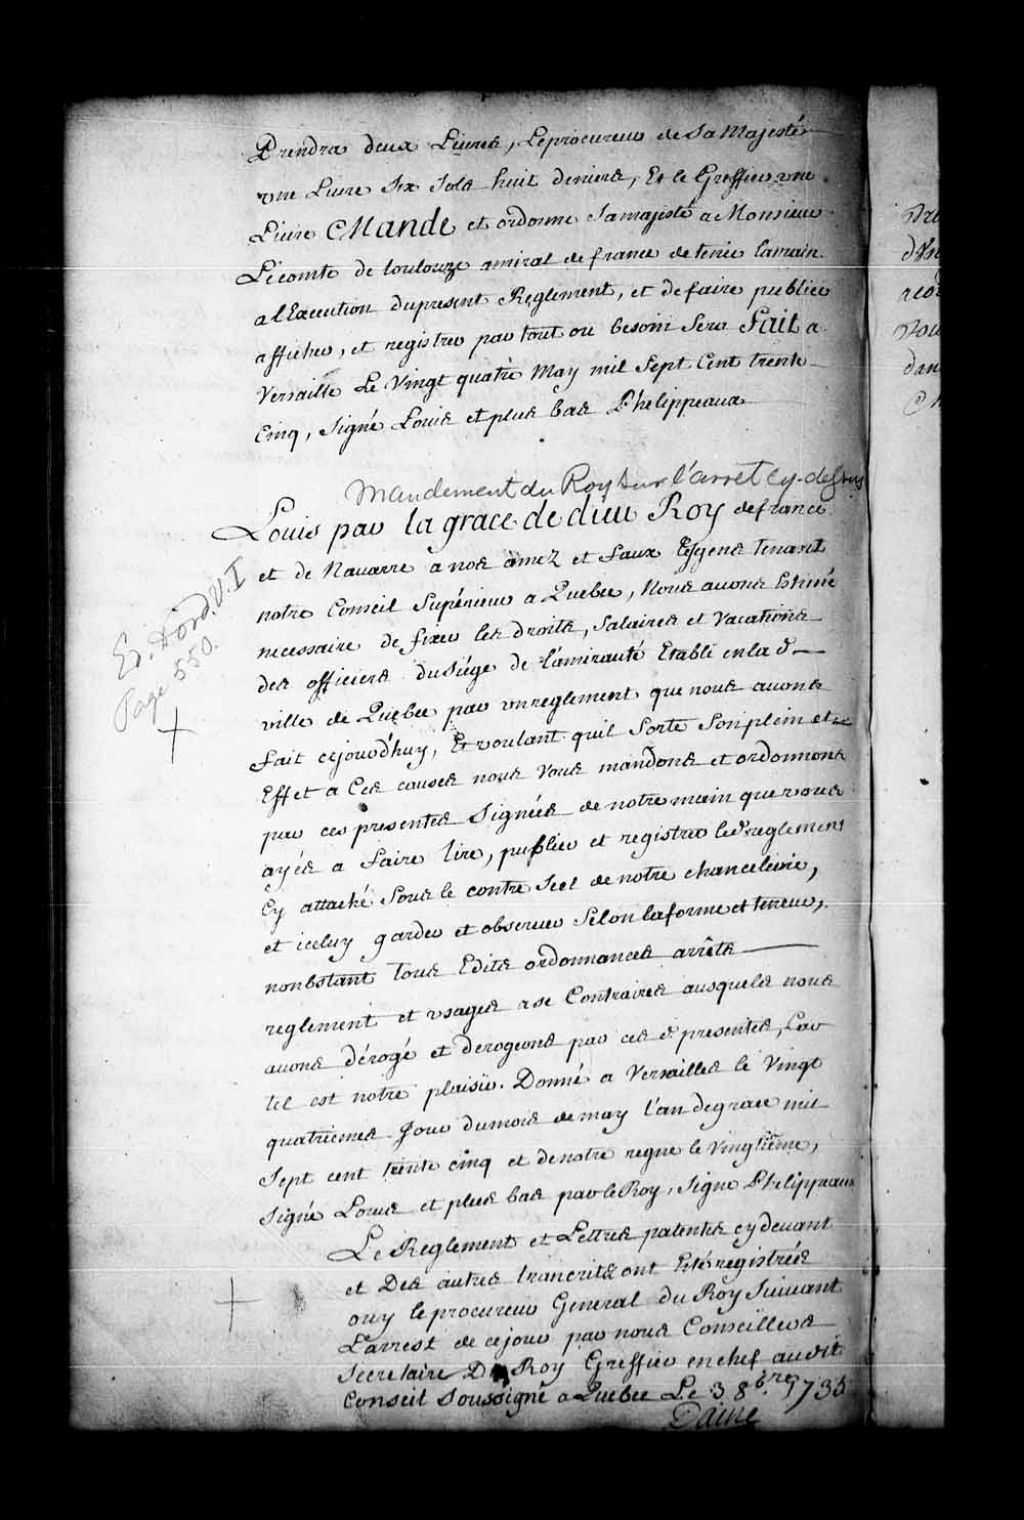 Prendra deux Livres, Le procureur de Sa Majesté
une Livre Six Sols huit deniers, Et le Greffier une
Livre Mande et ordonne Samajesté a Monsieur
Lecomte de toulouze amiral de france de tenir lamain
a l'Execution dupresent Reglement, et defaire publier
afficher, et registrer par tout ou besoin Sera Fait a
Versaille Le Vingt quatre May mil Sept Cent trente
Cinq, Signé Louis et plus bas Phelippeaux
Mandement du Roy sur l'arret cy-dessus
Louis par la grace de dieu Roy defrance
et de Navarre a nos amez et feaux Les gens tenant
notre Conseil Supérieur a Quebec, Nous avons Estimé
necessaire de fixer les droits, Salaires et Vacations
des officiers duSiége de l'amirauté Etabli enlad.
ville de Quebec par unreglement que nous avons
fait cejourd'huy, Et voulant quil Sorte Sonplein et
Effet a Ces causes nous Vous mandons et ordonnons
par ces presentes Signées de notre main que vous
ayés a faire lire, publier et registrer led. reglement
Cy attaché Sous le contre Scel de notre chancelerie,
et iceluy garder et observer Selon laforme et teneur,
nonbstant tous Edits ordonnances arrêts
reglement et usages a ce Contraires ausquels nous
avons dérogé et derogeons par ces d. presentes, Car
tel est notre plaisir. Donné a Versailles le Vingt
quatriemes Jour dumois demay l'an degrace mil
Sept cent trente cinq et denotre regne le vingtième,
Signé Louis et plus bas par le Roy, Signe Phelippeaux
Ed. d'ord. V. I
Page 550.
Le Reglement et Lettres patentes cydevant
et Des autres trancrits ont Eté registrés
ouy le procureur General du Roy Suivant
L'arrest de cejour par nous Conseillers
Secretaire Du Roy Greffier enchef audit
Conseil Soussigné a Quebec Le 3 8bre. 1735
Daine